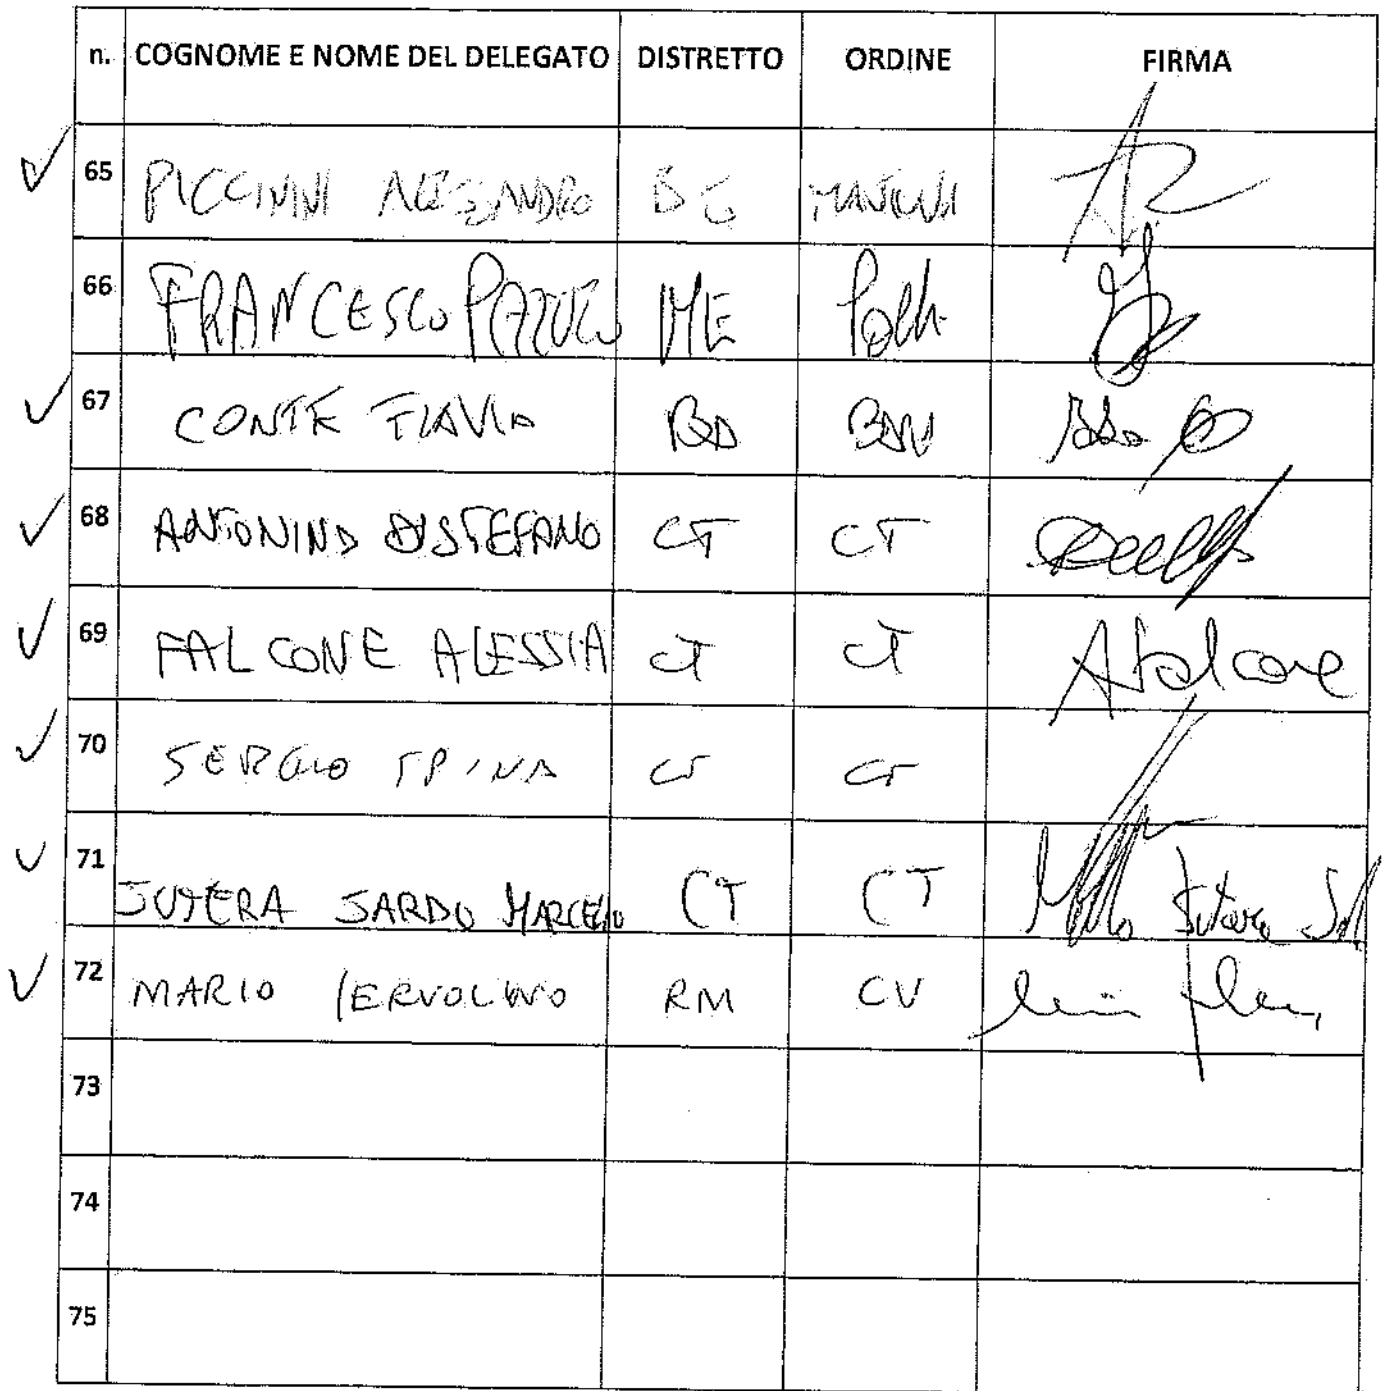 n. COGNOME E NOME DEL DELEGATO DISTRETTO ORDINE FIRMA
65 PICCINNI ALESSANDRO BG MANTOVA
66 FRANCESCO ME
67 CONTE FLAVIA BA
68 ANTONINO DISTEFANO CT CT
69 FALCONE ALESSIA CT CT AFalcone
70 SERGIO SPINA CT CT
71 JUTERA SARDO MARCELLO CT CT
72 MARIO IERVOLINO RM CV
73
74
75